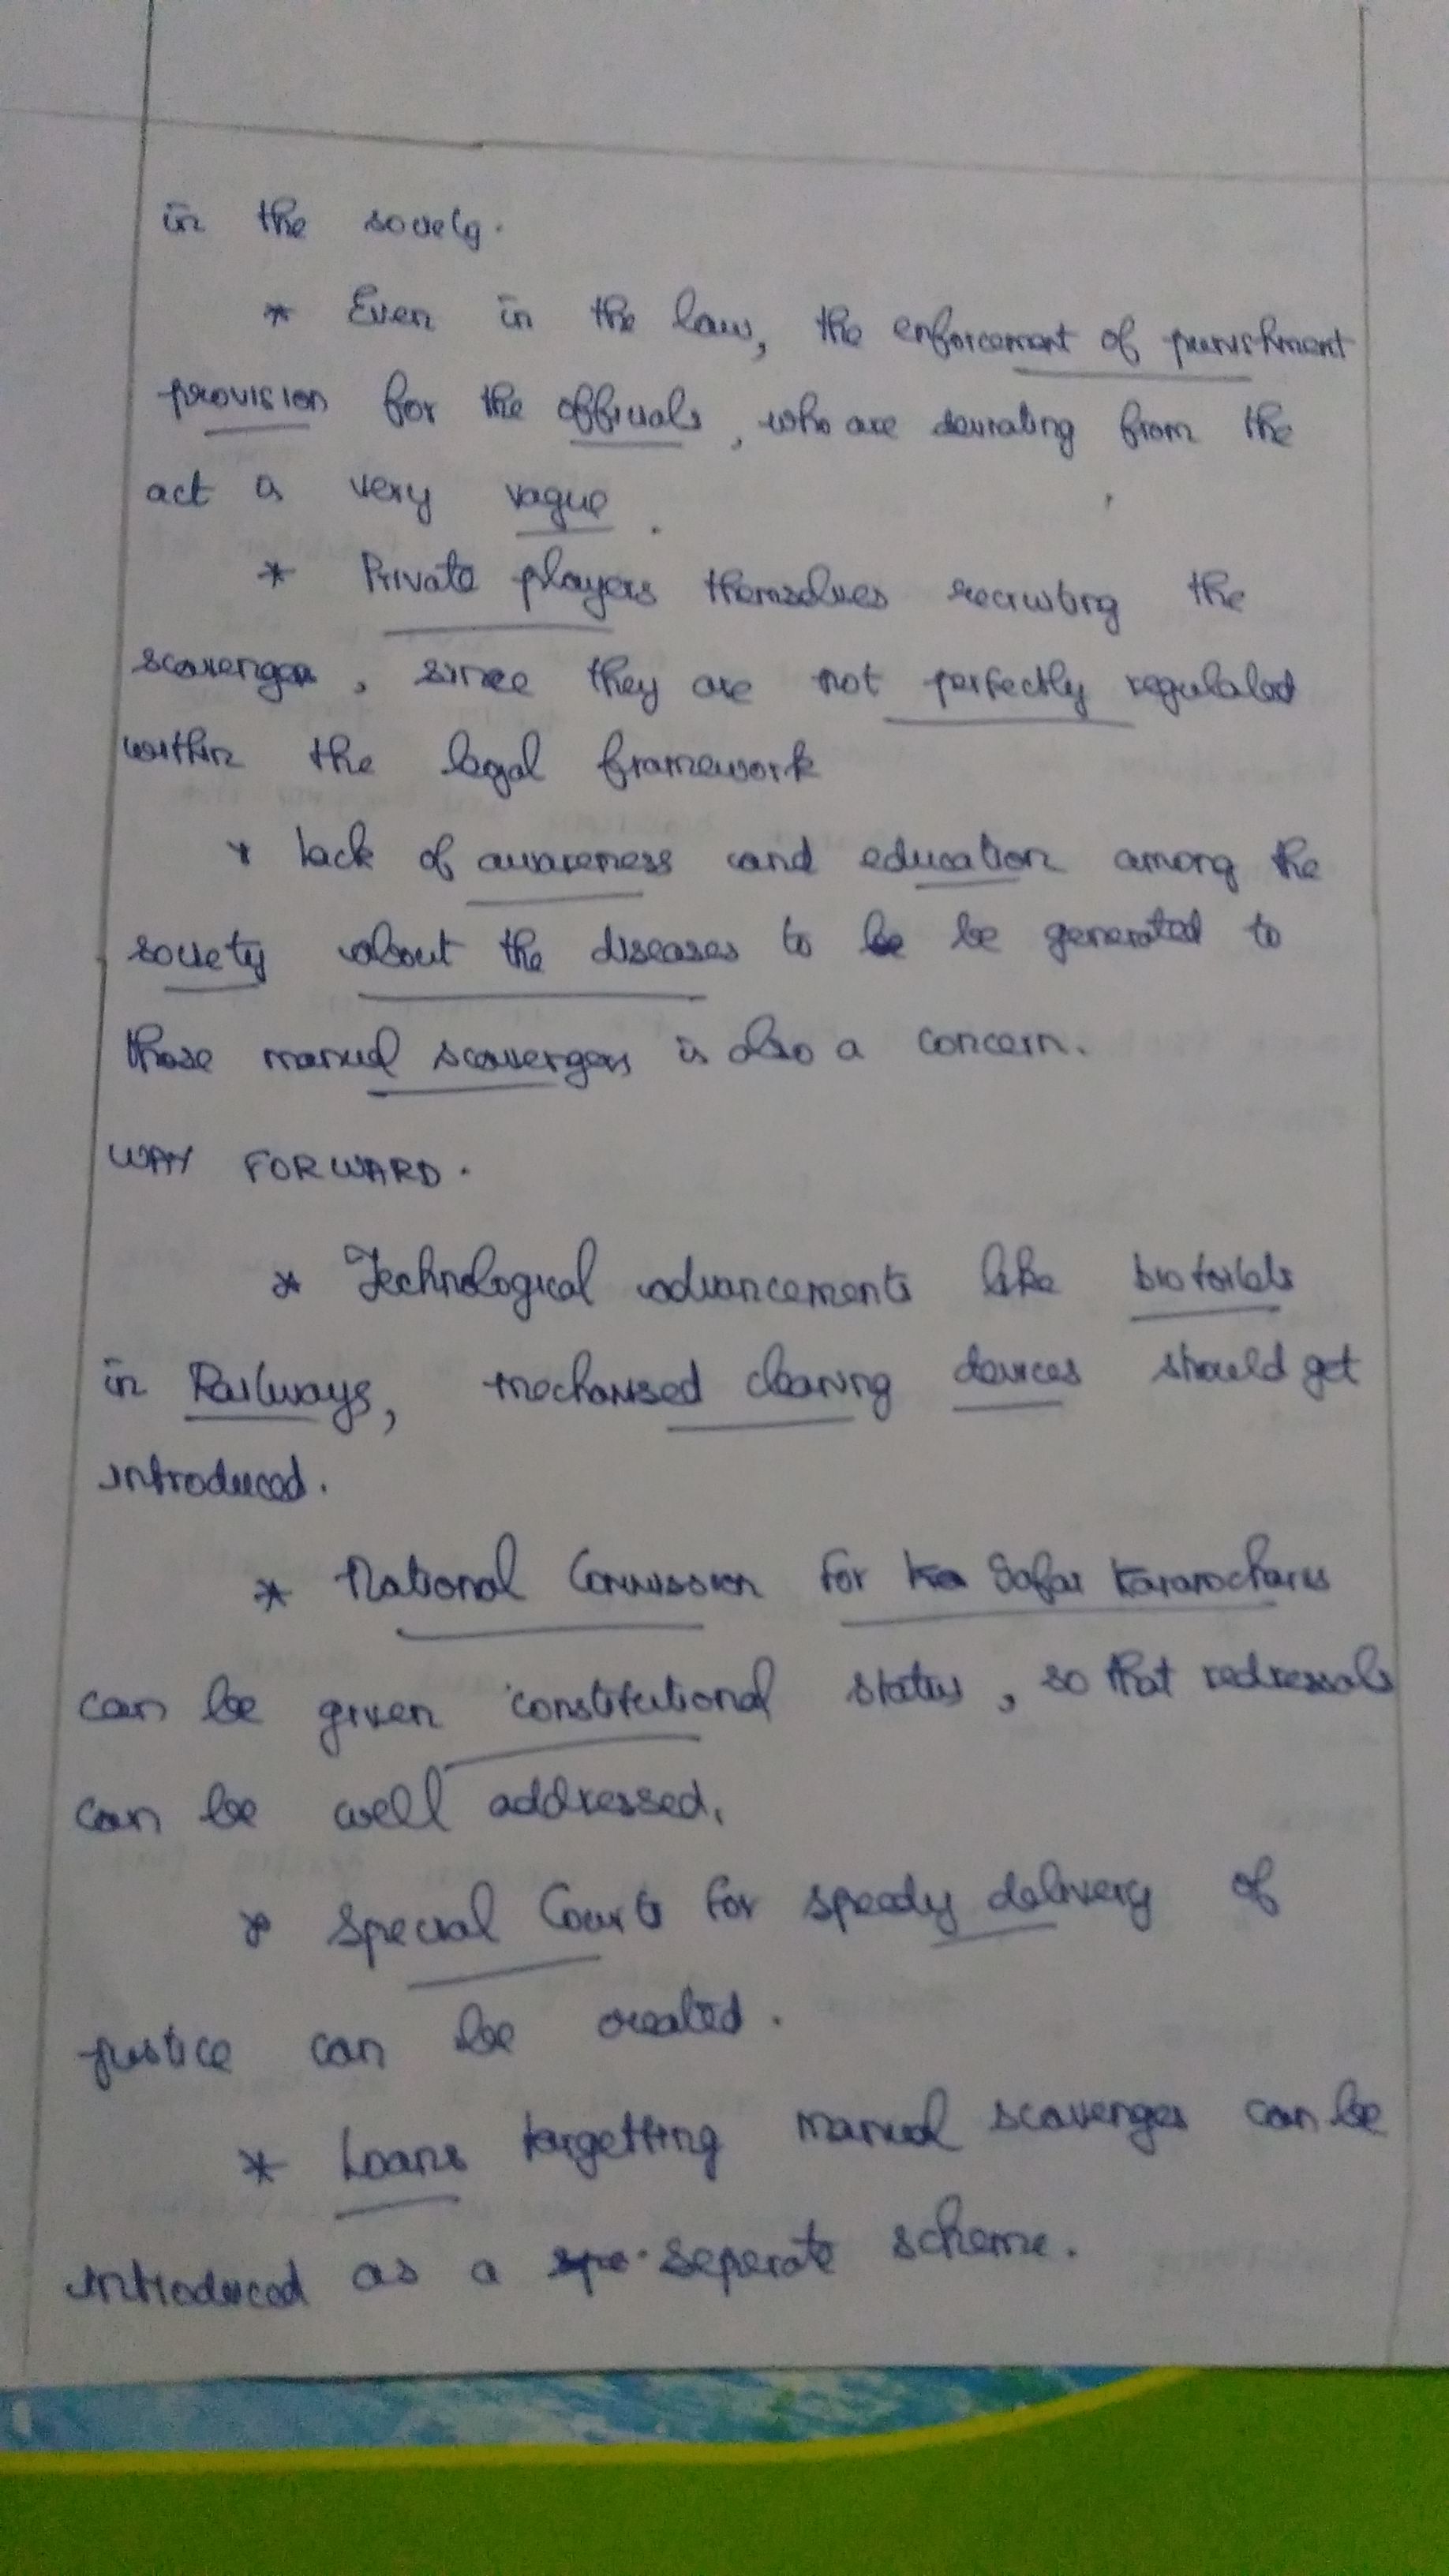 in the society.
* Even in the law, the enforcement of punishment
provision for the officials, who are deviating from the
act is very vague.
* Private players themselves recruiting the
scavengers, since they are not perfectly regulated
within the legal framework
* lack of awareness and education among the
society about the diseases to be be generated to
those manual scavengers is also a concern.
WAY FORWARD.
* Technological advancements like biotoilets
in Railways, mechanised cleaning devices should get
introduced.
* National Commission for Safai Karamcharis
can be given constitutional status, so that redressals
can be well addressed.
* Special Courts for speedy delivery of
justice can be created.
* Loans targetting manual scavenges can be
introduced as a seperate scheme.